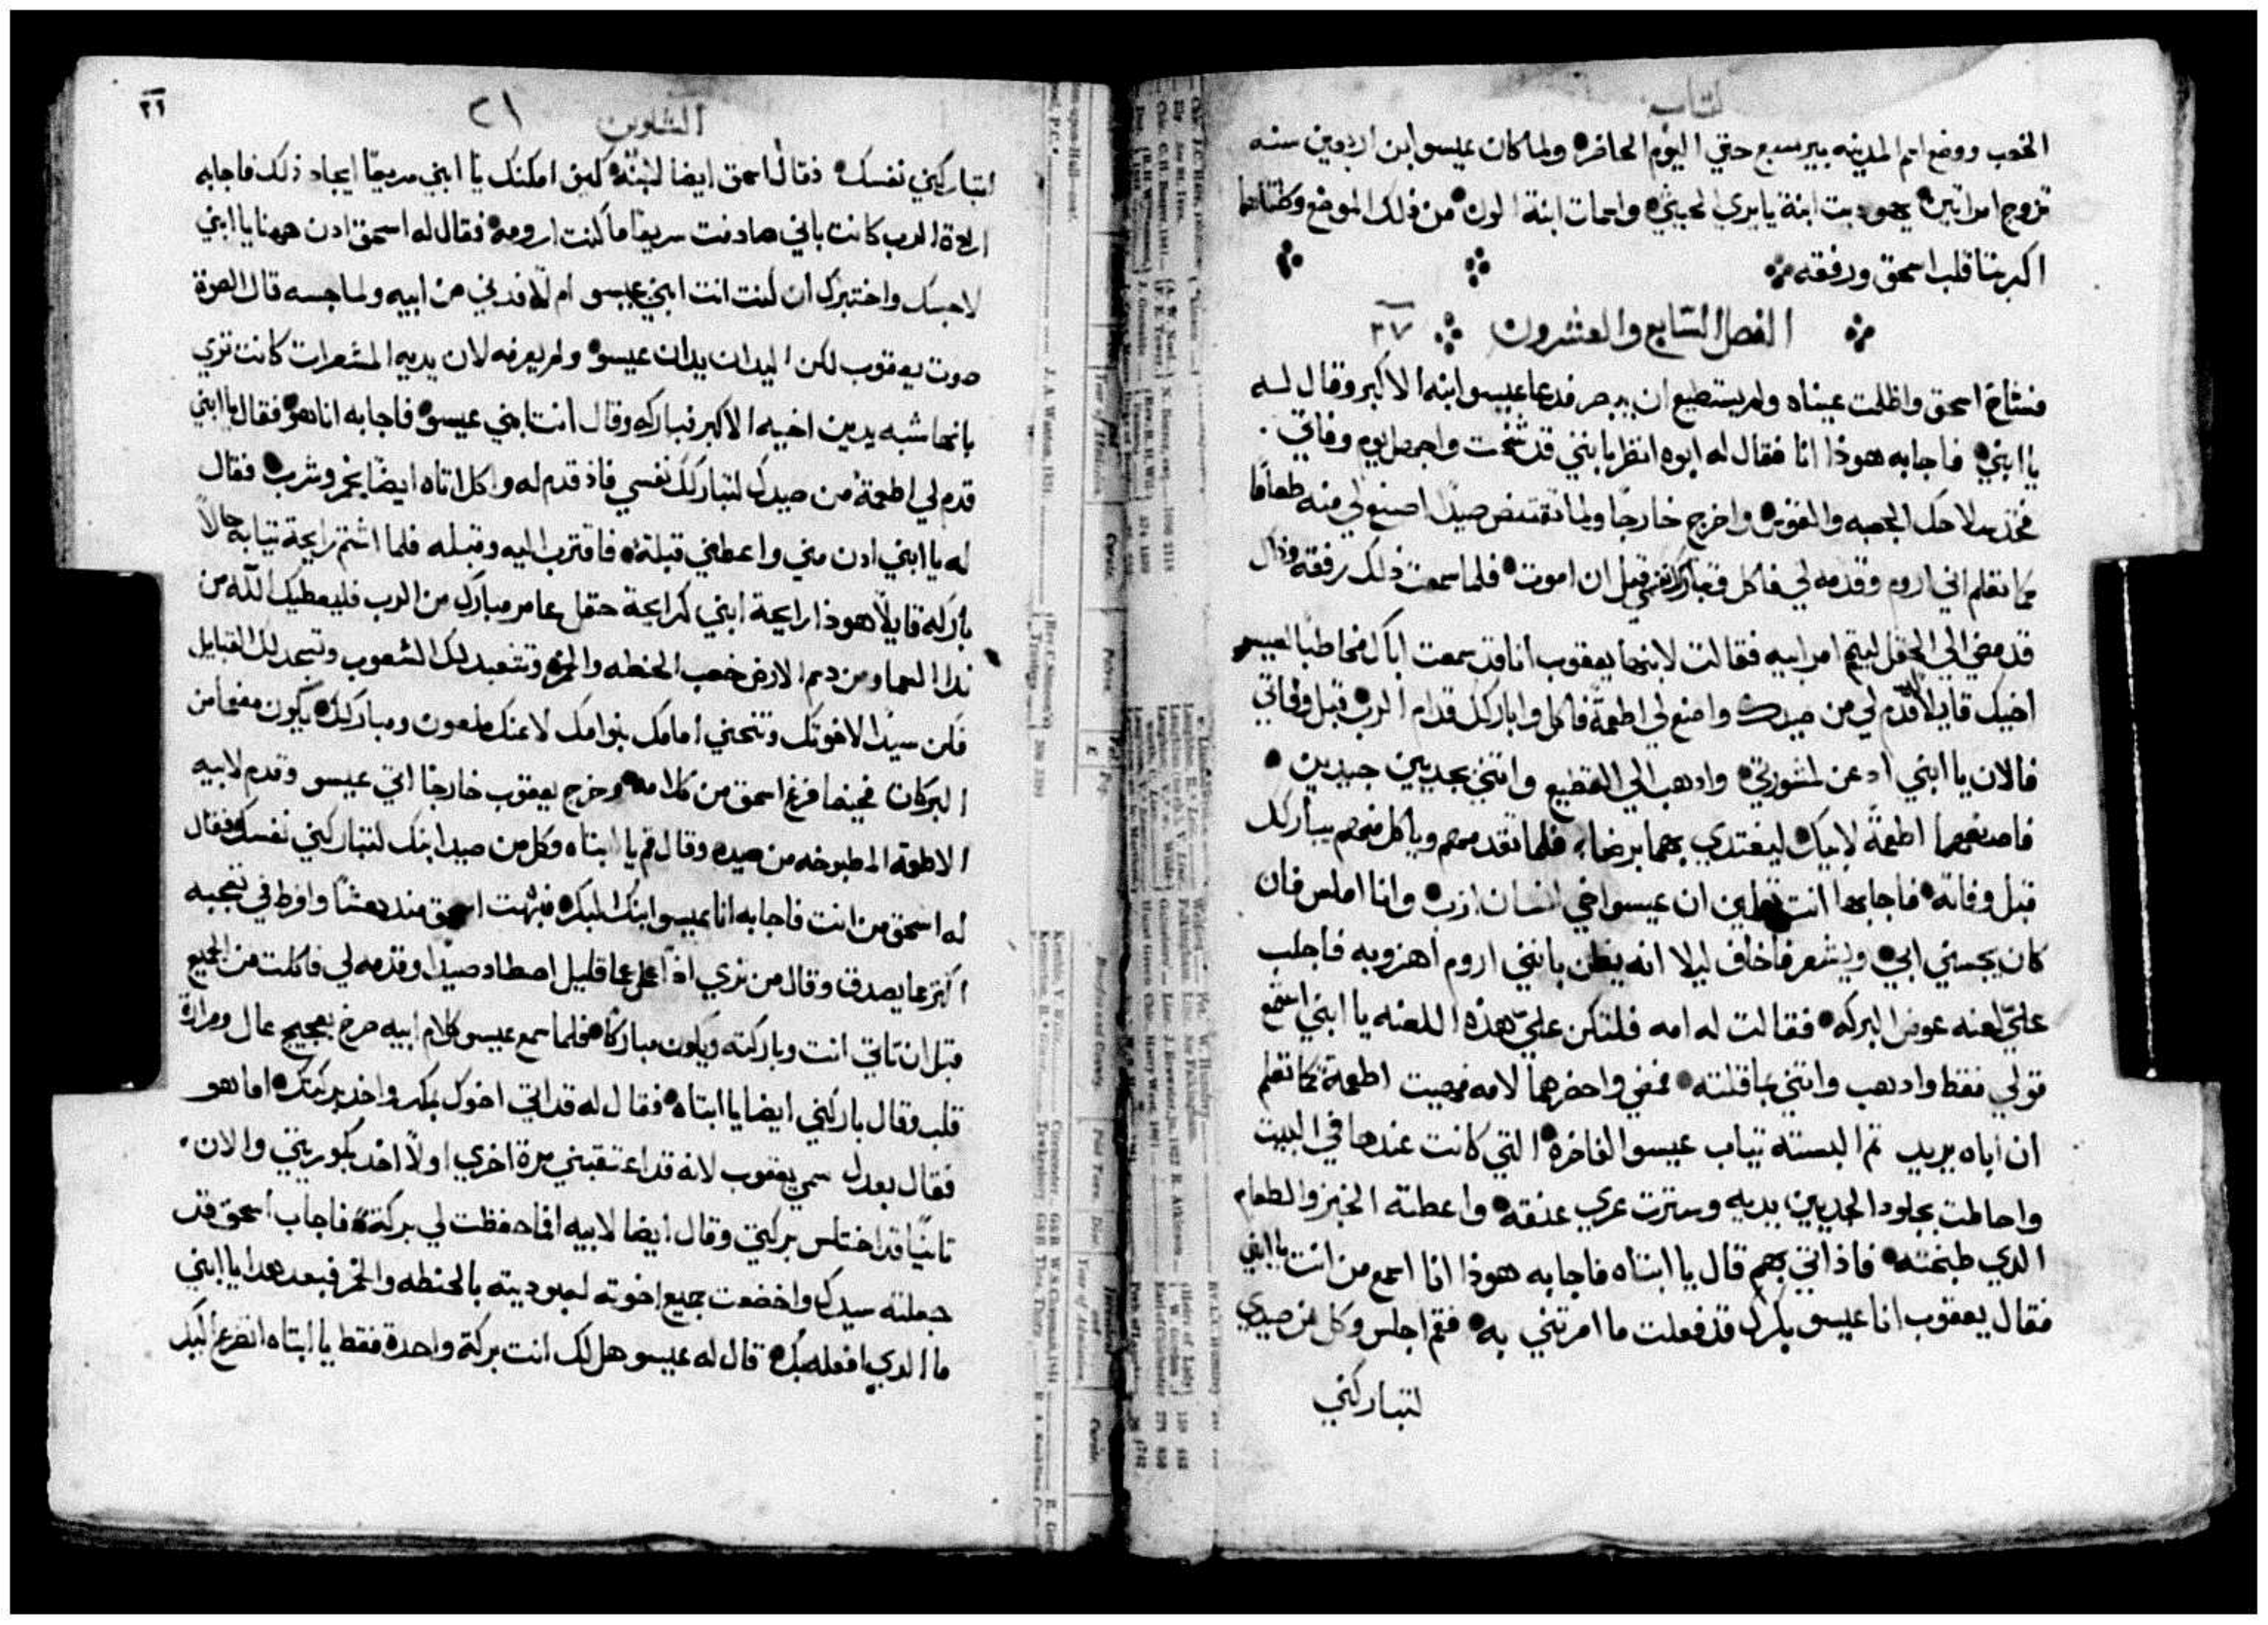 كتاب
الخصب ووضع اسم المدينه بيرسبع حتي اليوم الحاضر ولما كان عيسو ابن اربعين سنه
تزوج امراتين يهوديت ابنة يابري الحيثي واسمات ابنة الون من ذلك الموضع وكلتاهما
اكربتا قلب اسحق ورفقه
الفصل السابع والعشرون ٢٧
فشاخ اسحق واظلمت عيناه ولم يستطيع ان يبصر فدعا عيسو ابنه الاكبر وقال له
يا ابني فاجابه هوذا انا فقال له ابوه انظر بانني قد شخت واجهل يوم وفاتي
فخذ سلاحك الجعبه والقوس واخرج خارجًا ولما تقتنص صيدًا اصنع لي منه طعامًا
كما تعلم اني اروم وقدمه لي فاكل وتباركك نفسي قبل ان اموت فلما سمعت ذلك رفقه وذاك
قد مضي الي الحقل ليتم امر ابيه فقالت لابنها يعقوب انا قد سمعت اباك مخاطبًا لعيسو
اخيك قايلًا قدم لي من صيدك واصنع لي اطعمة فاكل واباركك قدام الرب قبل وفاتي
فالان يا ابني ادعن لمشورتي وادهب الي القطيع واتني بجديين جيدين
فاصنعهما اطعمةً لابيك ليغتدي بهما برضاه فلما تقدمهم وياكل منهم يباركك
قبل وفاته فاجابها انت تعلمين ان عيسو اخي انسان ازب وانا املس فان
كان يجسني ابي ويشعر فاخاف ليلا انه يظن بانني اروم اهزو به فاجلب
عليّ لعنه عوض البركه فقالت له امه فلتكن عليّ هذه اللعنه يا ابني استمع
قولي فقط وادهب واتني بما قلته فمضي واحضرهما لامه فهيت اطعمة كما تعلم
ان اباه يريد ثم البسته تياب عيسو الفاخرة التي كانت عندها في البيت
واحاطت بجلود الجديين يديه وسترت عري عنقه واعطته الخبز والطعام
الدي طبخته فاذ اتي بهم قال يا ابتاه فاجابه هوذا انا اسمع من انت يا ابني
فقال يعقوب انا عيسو بكرك قد فعلت ما امرتني به فقم اجلس وكل من صيدي
لتباركني
التكوين ٢١
٢١
لتباركني نفسك فقال اسحق ايضا لابنه كيف امكنك يا ابني سريعًا ايجاد ذلك فاجابه
ارادة الرب كانت باني صادفت سريعًا ما كنت ارومه فقال له اسحق ادن ههنا يا ابني
لاجسك واختبرك ان كنت انت ابني عيسو ام لا فدني من ابيه ولما جسه قال الصوة
صوت يعقوب لكن اليدان يدان عيسو ولم يعرفه لان يديه المشعرات كانت تري
بانها شبه يدين اخيه الاكبر فباركه وقال انت ابني عيسو فاجابه انا هو فقال يا ابني
قدم لي اطعمة من صيدك لتباركك نفسي فاذ قدم له واكل اتاه ايضًا بخمر وشرب فقال
له يا ابني ادن مني واعطني قبلة فاقترب اليه وقبله فلما اشتم رايحة تيابه حالًا
باركه قايلًا هوذا رايحة ابني كرايحة حقل عامر مبارك من الرب فليعطيك الله من
ندا السما ومن دسم الارض خصب الحنطه والخمر وتتعبد لك الشعوب وتسجد لك القبايل
فكن سيدًا لاخوتك وتنحني امامك بنو امك لاعنك ملعون ومباركك يكون مفعمًا من
البركات فحينما فرغ اسحق من كلامه وخرج يعقوب خارجًا اتي عيسو وقدم لابيه
الاطعمة المطبوخه من صيده وقال قم يا ابتاه وكل من صيد ابنك لتباركني نفسك فقال
له اسحق من انت فاجابه انا عيسو ابنك البكر فبهت اسحق مندهشًا وافرط في تعجبه
اكتر مما يصدق وقال من تري اذًا عما قليل اصطاد صيدًا وقدمه لي فاكلت من الجميع
قبل ان تاتي انت وباركته ويكون مباركًا فلما سمع عيسو كلام ابيه صرخ بعجيج عال ومرارة
قلب وقال باركني ايضا يا ابتاه فقال له قد اتي اخوك بمكر واخد بركتك اما هو
فقال بعدل سمي يعقوب لانه قد اعتقبني مرة اخري اولًا اخد بكوريتي والان
ثانيًا قد اختلس بركتي وقال ايضا لابيه افما حفظت لي بركة فاجاب اسحق قد
جعلته سيدك واخضعت جميع اخوته لعبوديته بالحنطه والخمر فبعد هدا يا ابني
ما الدي افعله بك قال له عيسو هل لك انت بركة واحدة فقط يا ابتاه اتضرع اليك